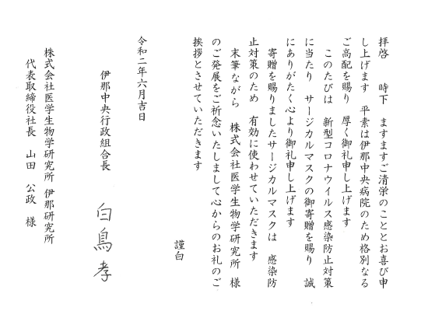 拝啓　時下　ますますご清栄のこととお喜び申
し上げます　平素は伊那中央病院のため格別なる
ご高配を賜り　厚く御礼申し上げます
このたびは　新型コロナウイルス感染防止対策
に当たり　サージカルマスクの御寄贈を賜り　誠
にありがたく心より御礼申し上げます
寄贈を賜りましたサージカルマスクは　感染防
止対策のため　有効に使わせていただきます
末筆ながら　株式会社医学生物学研究所　様
のご発展をご祈念いたしまして心からのお礼のご
挨拶とさせていただきます
謹白
令和二年六月吉日
伊那中央行政組合長
白鳥孝
株式会社医学生物学研究所　伊那研究所
代表取締役社長　山田　公政　様